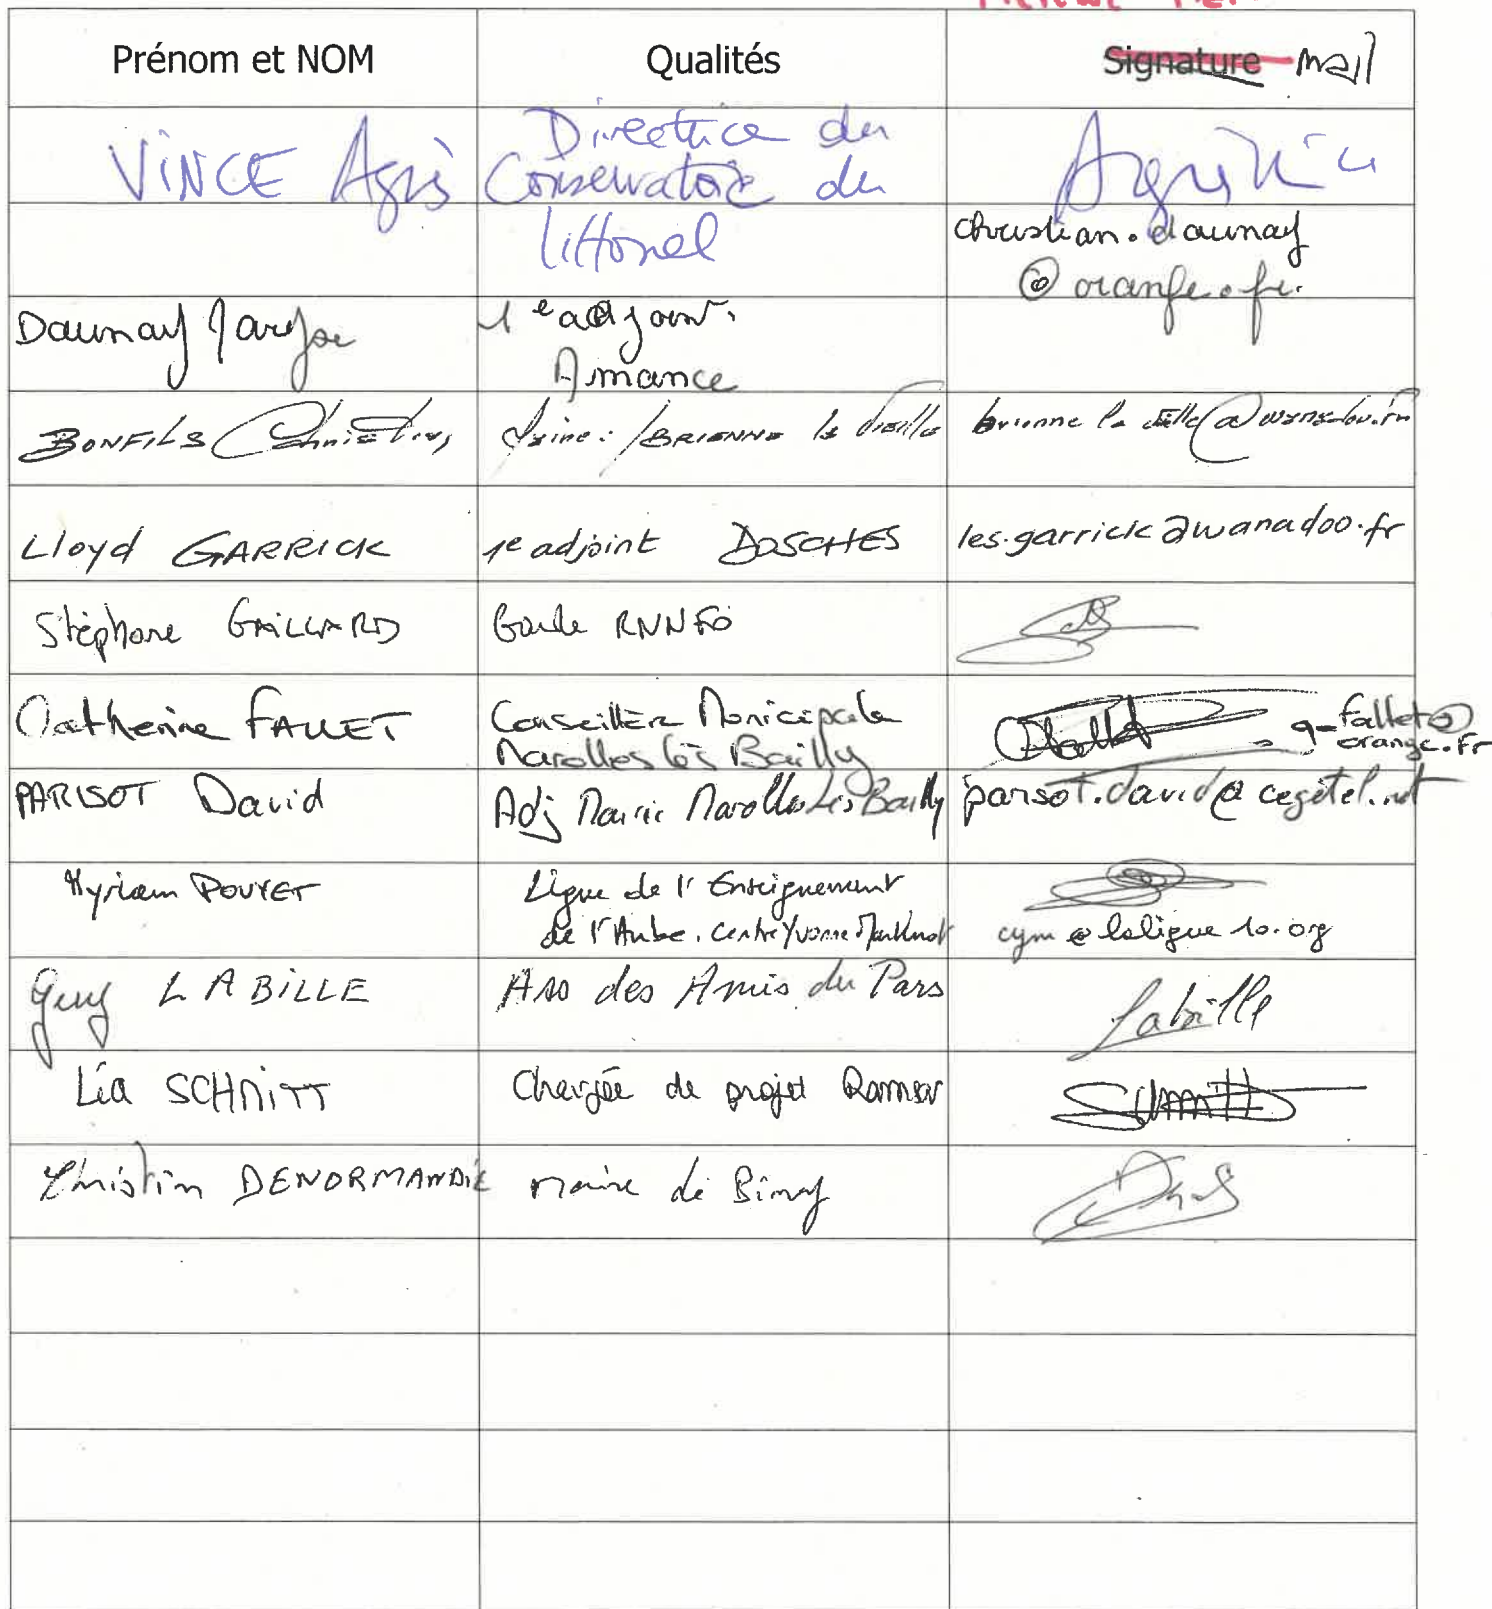 Prénom et NOM Qualités Signature mail
VINCE Agnès Directrice du
Conservatoire du
littoral
christian.daunay
@orange.fr.
Daunay 1e adjoint.
Amance
BONFILS Christian, Maire: /BRIENNE la Vieille brienne.la.vieille@wanadoo.fr
Lloyd GARRICK 1e adjoint DOSCHES les.garrick@wanadoo.fr
Stéphane GAILLARD Garde RNNFO
Catherine FALLET Conseillère Municipale
Marolles lès Bailly
g-fallet@
orange.fr
PARISOT David Adj Mairie Marolles Lès Bailly parisot.david@cegetel.net
Myriam POUYET Ligue de l'Enseignement
de l'Aube. Centre Yvonne Martinot cym@laligue10.org
Guy LABILLE Asso des Amis du Parc Labille
Léa SCHMITT Chargée de projet Ramsar Schmitt
Christian DENORMANDIE maire de